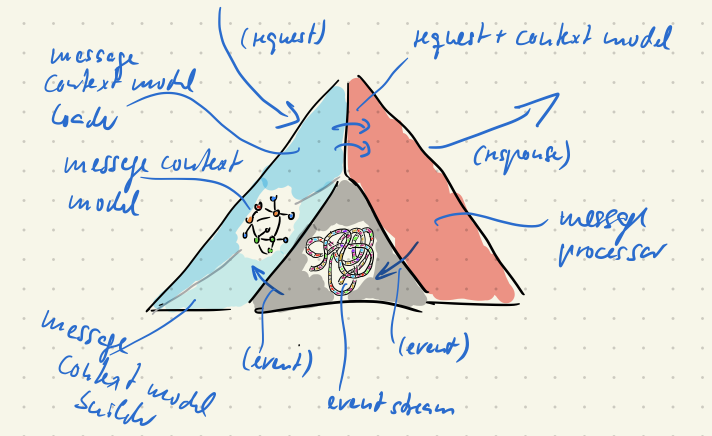 (request)
request + context model
message
context model
loader
message context
model
(response)
message
processor
message
context model
builder
(event)
(event)
event stream